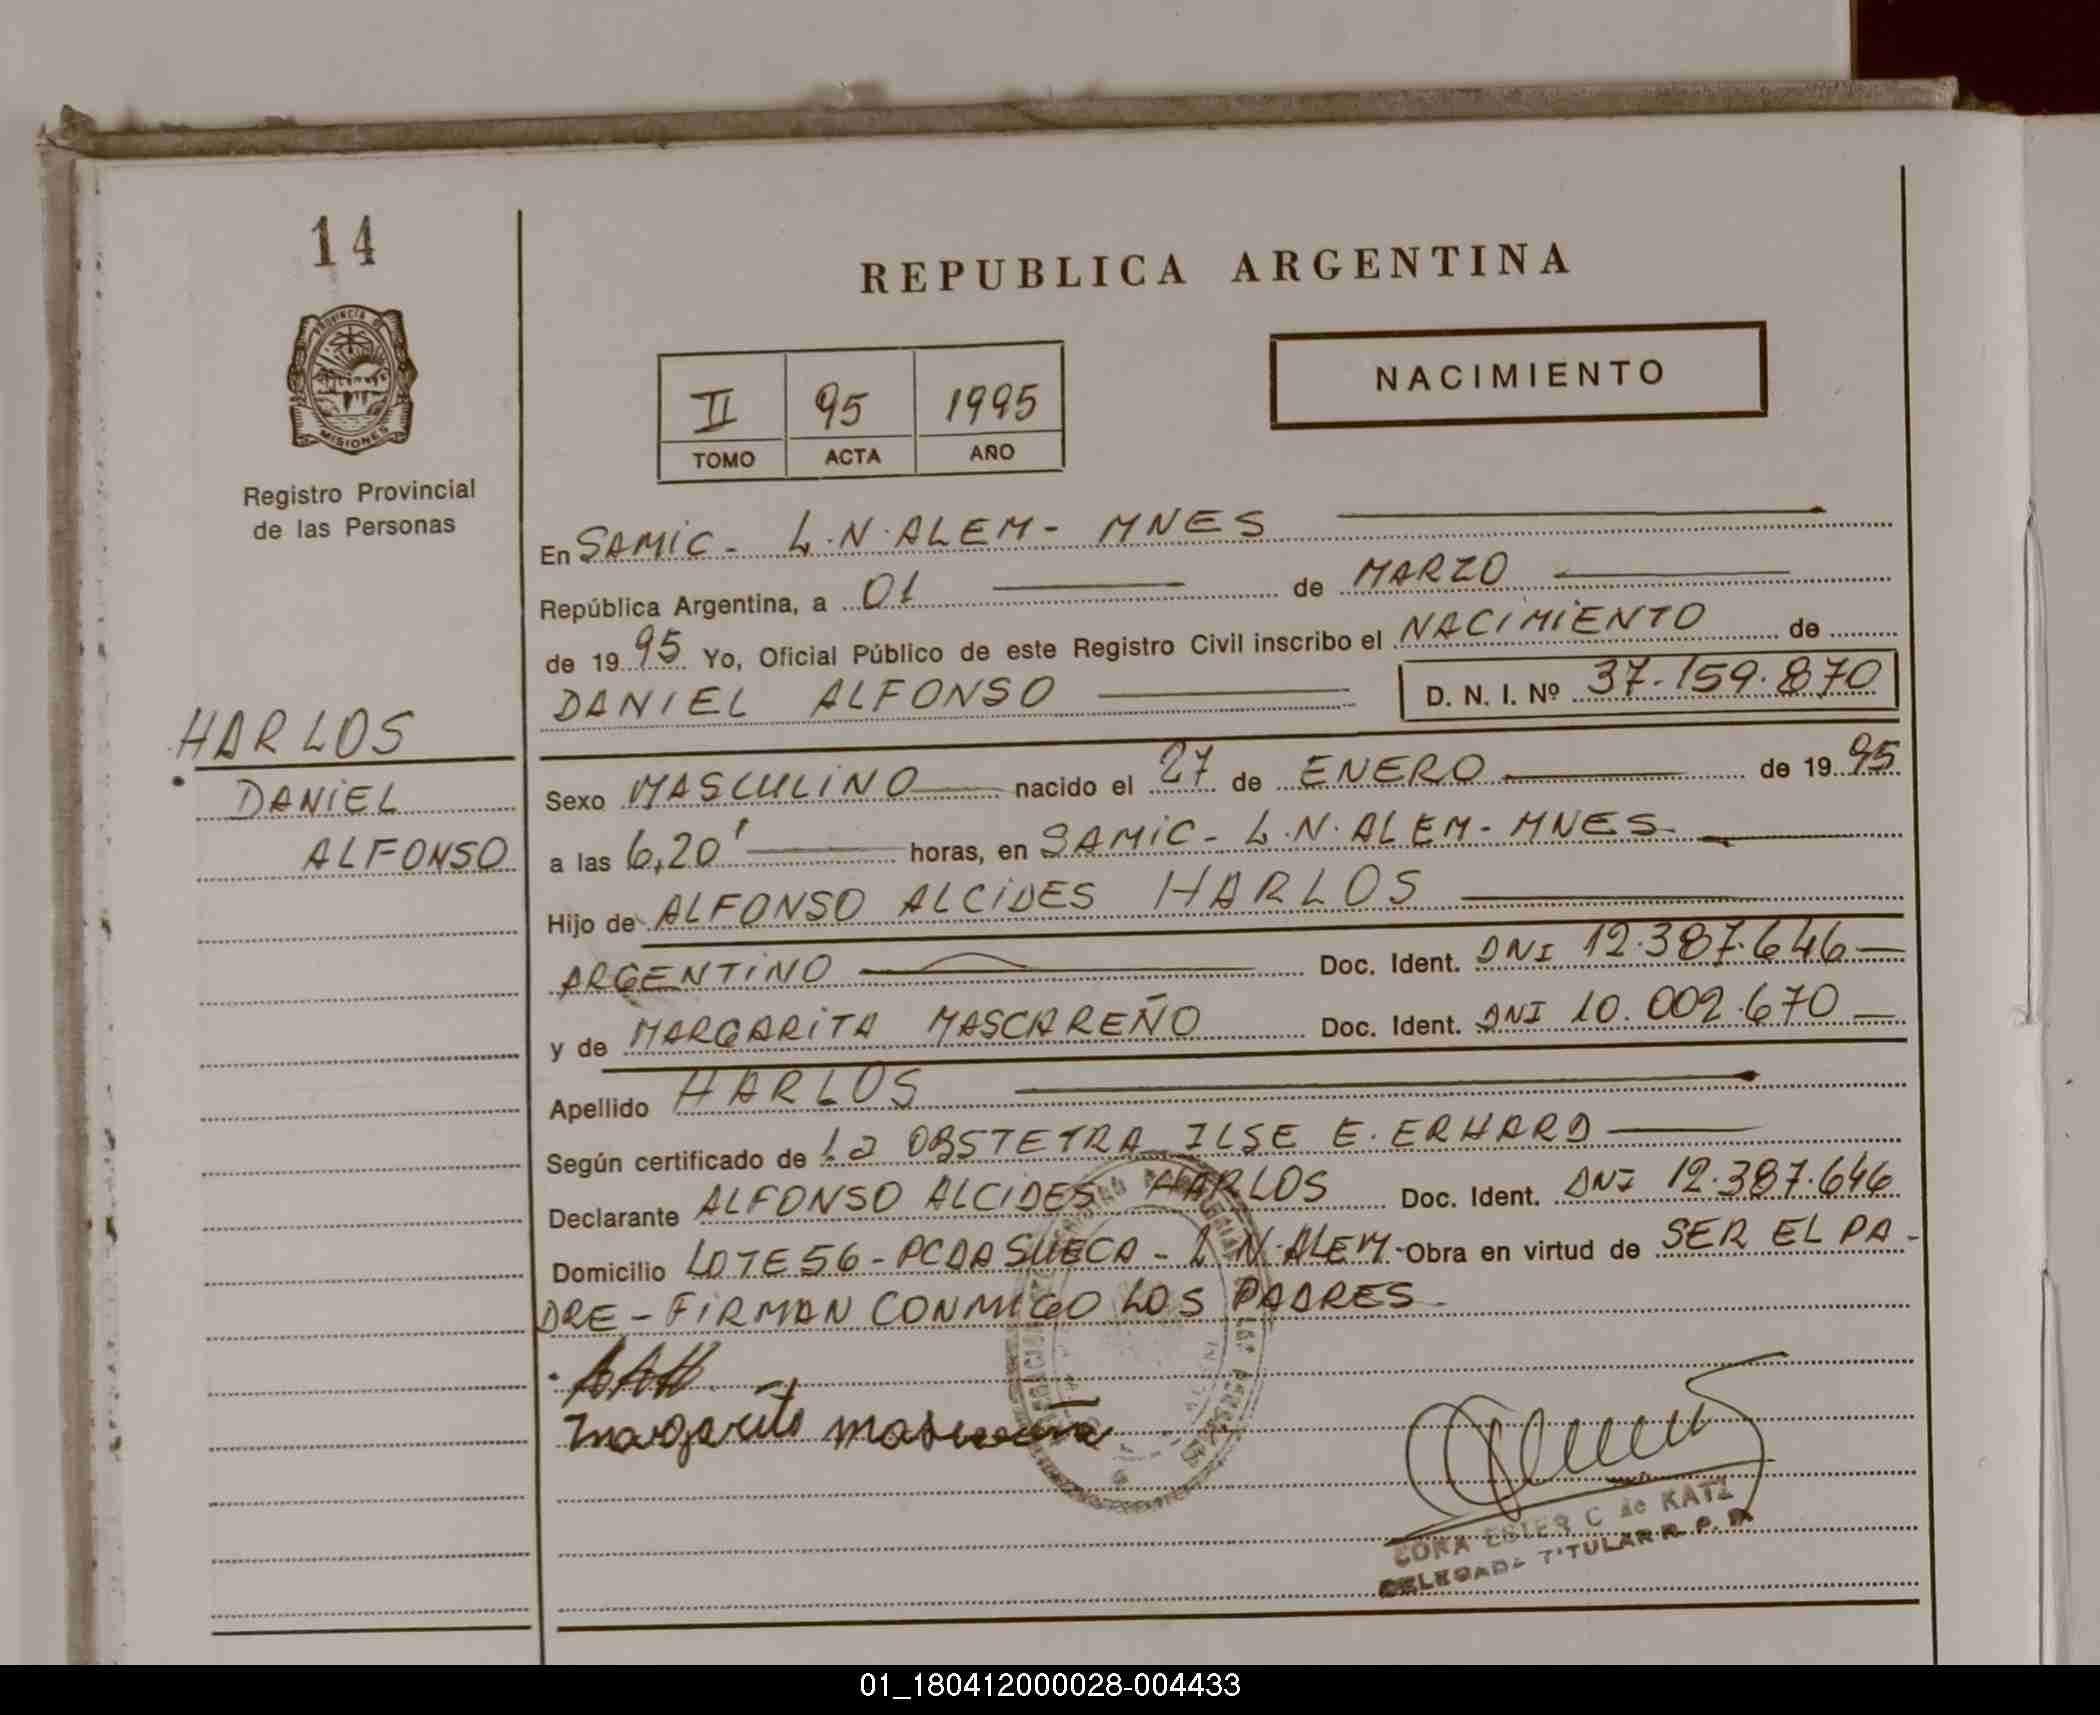 14
PROVINCIA DE
MISIONES
Registro Provincial
de las Personas
HARLOS
DANIEL
ALFONSO
REPUBLICA ARGENTINA
NACIMIENTO
II 95 1995
TOMO ACTA AÑO
En SAMIC - L.N. ALEM - MNES
República Argentina, a 01 de MARZO
de 1995 Yo, Oficial Público de este Registro Civil inscribo el NACIMIENTO de
DANIEL ALFONSO D. N. I. Nº 37.159.870
Sexo MASCULINO nacido el 27 de ENERO de 1995
a las 6,20' horas, en SAMIC - L.N. ALEM - MNES
Hijo de ALFONSO ALCIDES HARLOS
ARGENTINO Doc. Ident. DNI 12.387.646
y de MARGARITA MASCAREÑO Doc. Ident. DNI 10.002.670
Apellido HARLOS
Según certificado de La OBSTETRA ILSE E. ERHARD
Declarante ALFONSO ALCIDES HARLOS Doc. Ident. DNI 12.387.646
Domicilio LOTE 56 - PCDA SUECA - L N. ALEM - Obra en virtud de SER EL PA-
DRE - FIRMAN CONMIGO LOS PADRES -
AAH
Margarita
ESTER C de KATZ
DELEGADA TITULAR R. P. P.
01_180412000028-004433